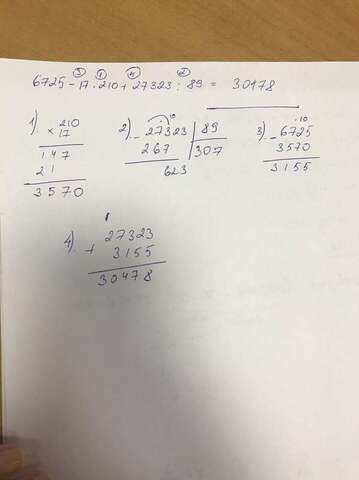 ③ ① ④ ②
6725 - 17 · 210 + 27323 : 89 = 30478
1) 210
× 17
147
21
3570
2) - 27323 | 89
267 | 307
623
3) - 6725
3570
3155
4) 27323
+ 3155
30478